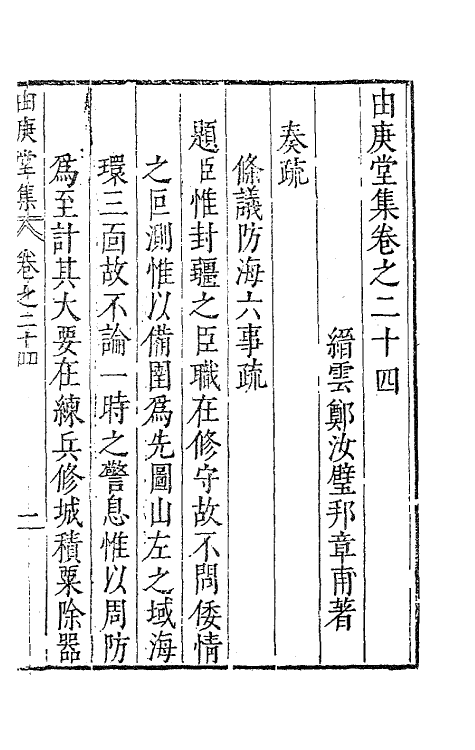 由庚堂集卷之二十四
縉雲鄭汝璧邦章甫著
奏疏
條議防海六事疏
題臣惟封疆之臣職在修守故不問倭情
之叵測惟以備圉為先圖山左之域海
環三面故不論一時之警息惟以周防
為至計其大要在練兵修城積粟除器
由庚堂集 卷之二十四 一